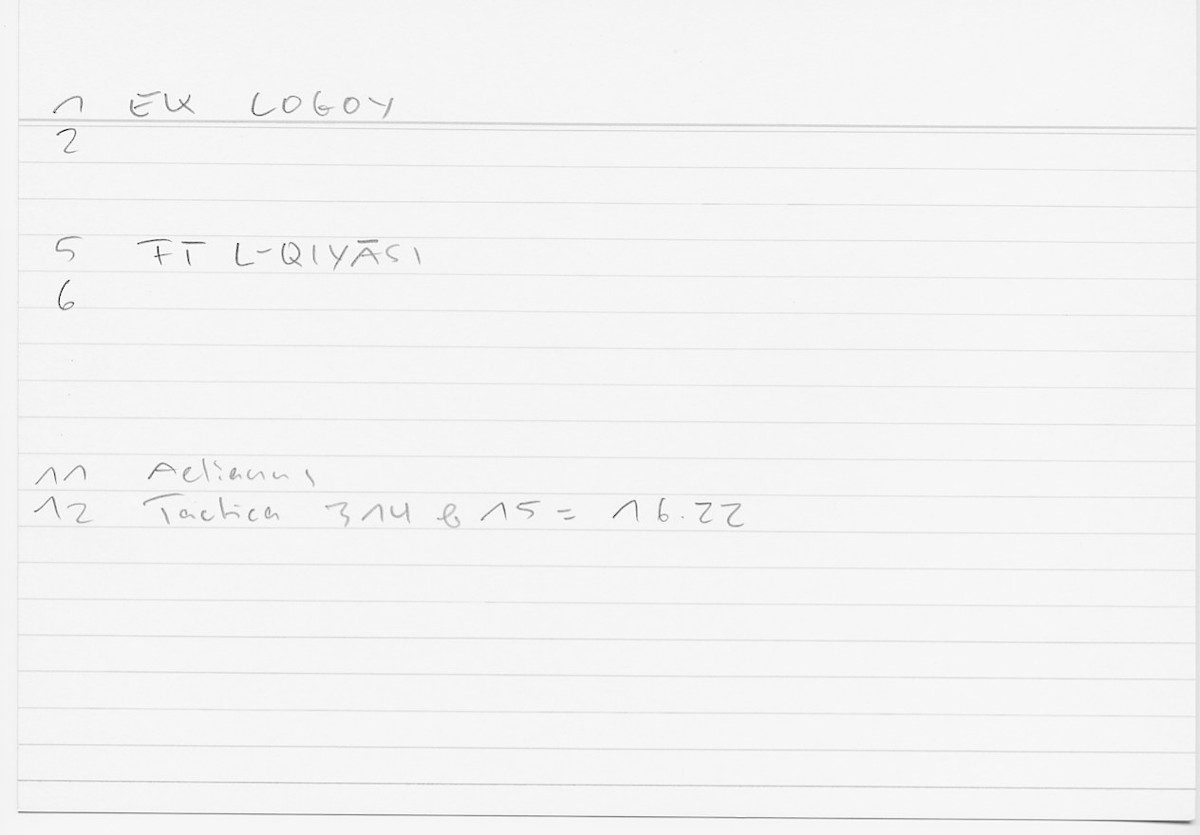 1 EK LOGOY
2
5 FĪ L-QIYĀSI
6
11 Aelianus
12 Tactica 314 b 15 = 16.22